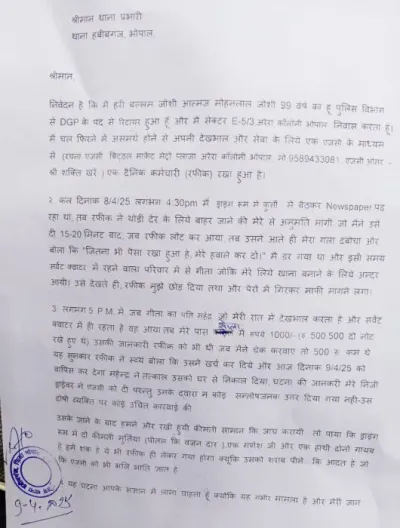 श्रीमान थाना प्रभारी
थाना हबीबगंज, भोपाल,
श्रीमान,
निवेदन है कि मैं हरी बल्लम जोशी आत्मज मोहनलाल जोशी 99 वर्ष का हू पुलिस विभाग
से DGP के पद से रिटायर हुआ हूँ और मैं सेक्टर E-5/3 अरेरा कॉलोनी भोपाल निवास करता हूं|
मैं चल फिरने में असमर्थ होने से अपनी देखभाल और सेवा के लिये एक एजेंसी के माध्यम
से (रचना एजेंसी बिटठल मार्केट मेट्रो प्लाजा अरेरा कॉलोनी भोपाल मो 9589433081, एजेंसी ओनर -
श्री शक्ति खरे ) एक दैनिक कर्मचारी (रफीक) रखा हुआ है|
2. कल दिनांक 8/4/25 लगभग 4:30pm में ड्राइंग रूम में कुर्सी में बैठकर Newspaper पढ़
रहा था, तब रफीक ने थोड़ी देर के लिये बाहर जाने की मेरे से अनुमति मांगी जो मैंने उसे
दी 15-20 मिनट बाद, जब रफीक लौट कर आया तब उसने आते ही मेरा गला दबोचा और
बोला कि "जितना भी पैसा रखा हुआ है, मेरे हवाले कर दो|" मैं डर गया था और इसी समय
सर्वेंट क्वाटर में रहने वाला परिवार में से गीता जोकि मेरे लिये खाना बनाने के लिये अन्दर
आयी| उसे देखते ही, रफीक मुझे छोड दिया तथा और पेरों में गिरकर माफी मांगने लगा|
3. लगभग 5 P.M. में, जब गीता का पति महेंद्र जो मेरी रात में देखभाल करता है और सर्वेंट
क्वाटर में ही रहता है वह आया तब मेरे पास में रुपये 1000/- (रु 500,500 दो नोट
रखे हुए थे) उसकी जानकारी रफीक को भी थी जब मैंने चेक करवाए तो 500 रु कम थे
यह सुनकार रफीक ने स्वयं बोला कि उसने खर्च कर दिये और आज दिनांक 9/4/25 को
वापिस कर देगा महेन्द्र ने तत्काल उसको घर से निकाल दिया, घटना की जानकारी मेरे निजी
ड्राईवर ने एजेंसी को दी परन्तु उनके द्वारा न कोई संतोषजनक उत्तर दिया गया नही-उस
दोषी व्यक्ति पर कोई उचित कारवाई की
उसके जाने के बाद हमने और रखी हुयी कीमती सामान कि जांच करायी तो पाया कि ड्राइंग
रूम में दो कीमती मूर्तियां (पीतल कि वजन दार ) एक गणेश जी और एक हाथी दोनों गायब
है हमे शक है ये भी रफीक ही लेकर गया होगा क्यूंकि उसको शराब पीने कि आदत है जो
कि एजेंसी को भी भांति भांति ज्ञात है
यह घटना आपके संज्ञान में लाना चाहता हूँ क्योंकि यह गंभीर मामला है और मेरी जान
9-4-2025